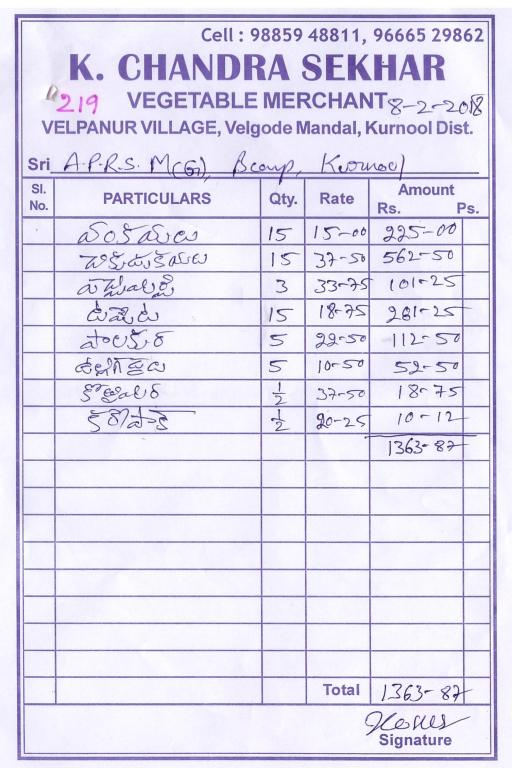 Cell : 98859 48811, 96665 29862
K. CHANDRA SEKHAR
219 VEGETABLE MERCHANT 8-2-2018
VELPANUR VILLAGE, Velgode Mandal, Kurnool Dist.
Sri A.P.R.S. M(G), Bcamp, Kurnool
Sl. No. PARTICULARS Qty. Rate Amount Rs. Ps.
వంకాయలు 15 15-00 225-00
చిక్కుడుకాయలు 15 37-50 562-50
పచ్చిమిర్చి 3 33-75 101-25
టమేట 15 18-75 281-25
పాలకూర 5 22-50 112-50
ఉల్లిగడ్డలు 5 10-50 52-50
కొత్తిమీర ½ 37-50 18-75
కరేపాక్ ½ 20-25 10-12
1363-87
Total 1363-87
Signature